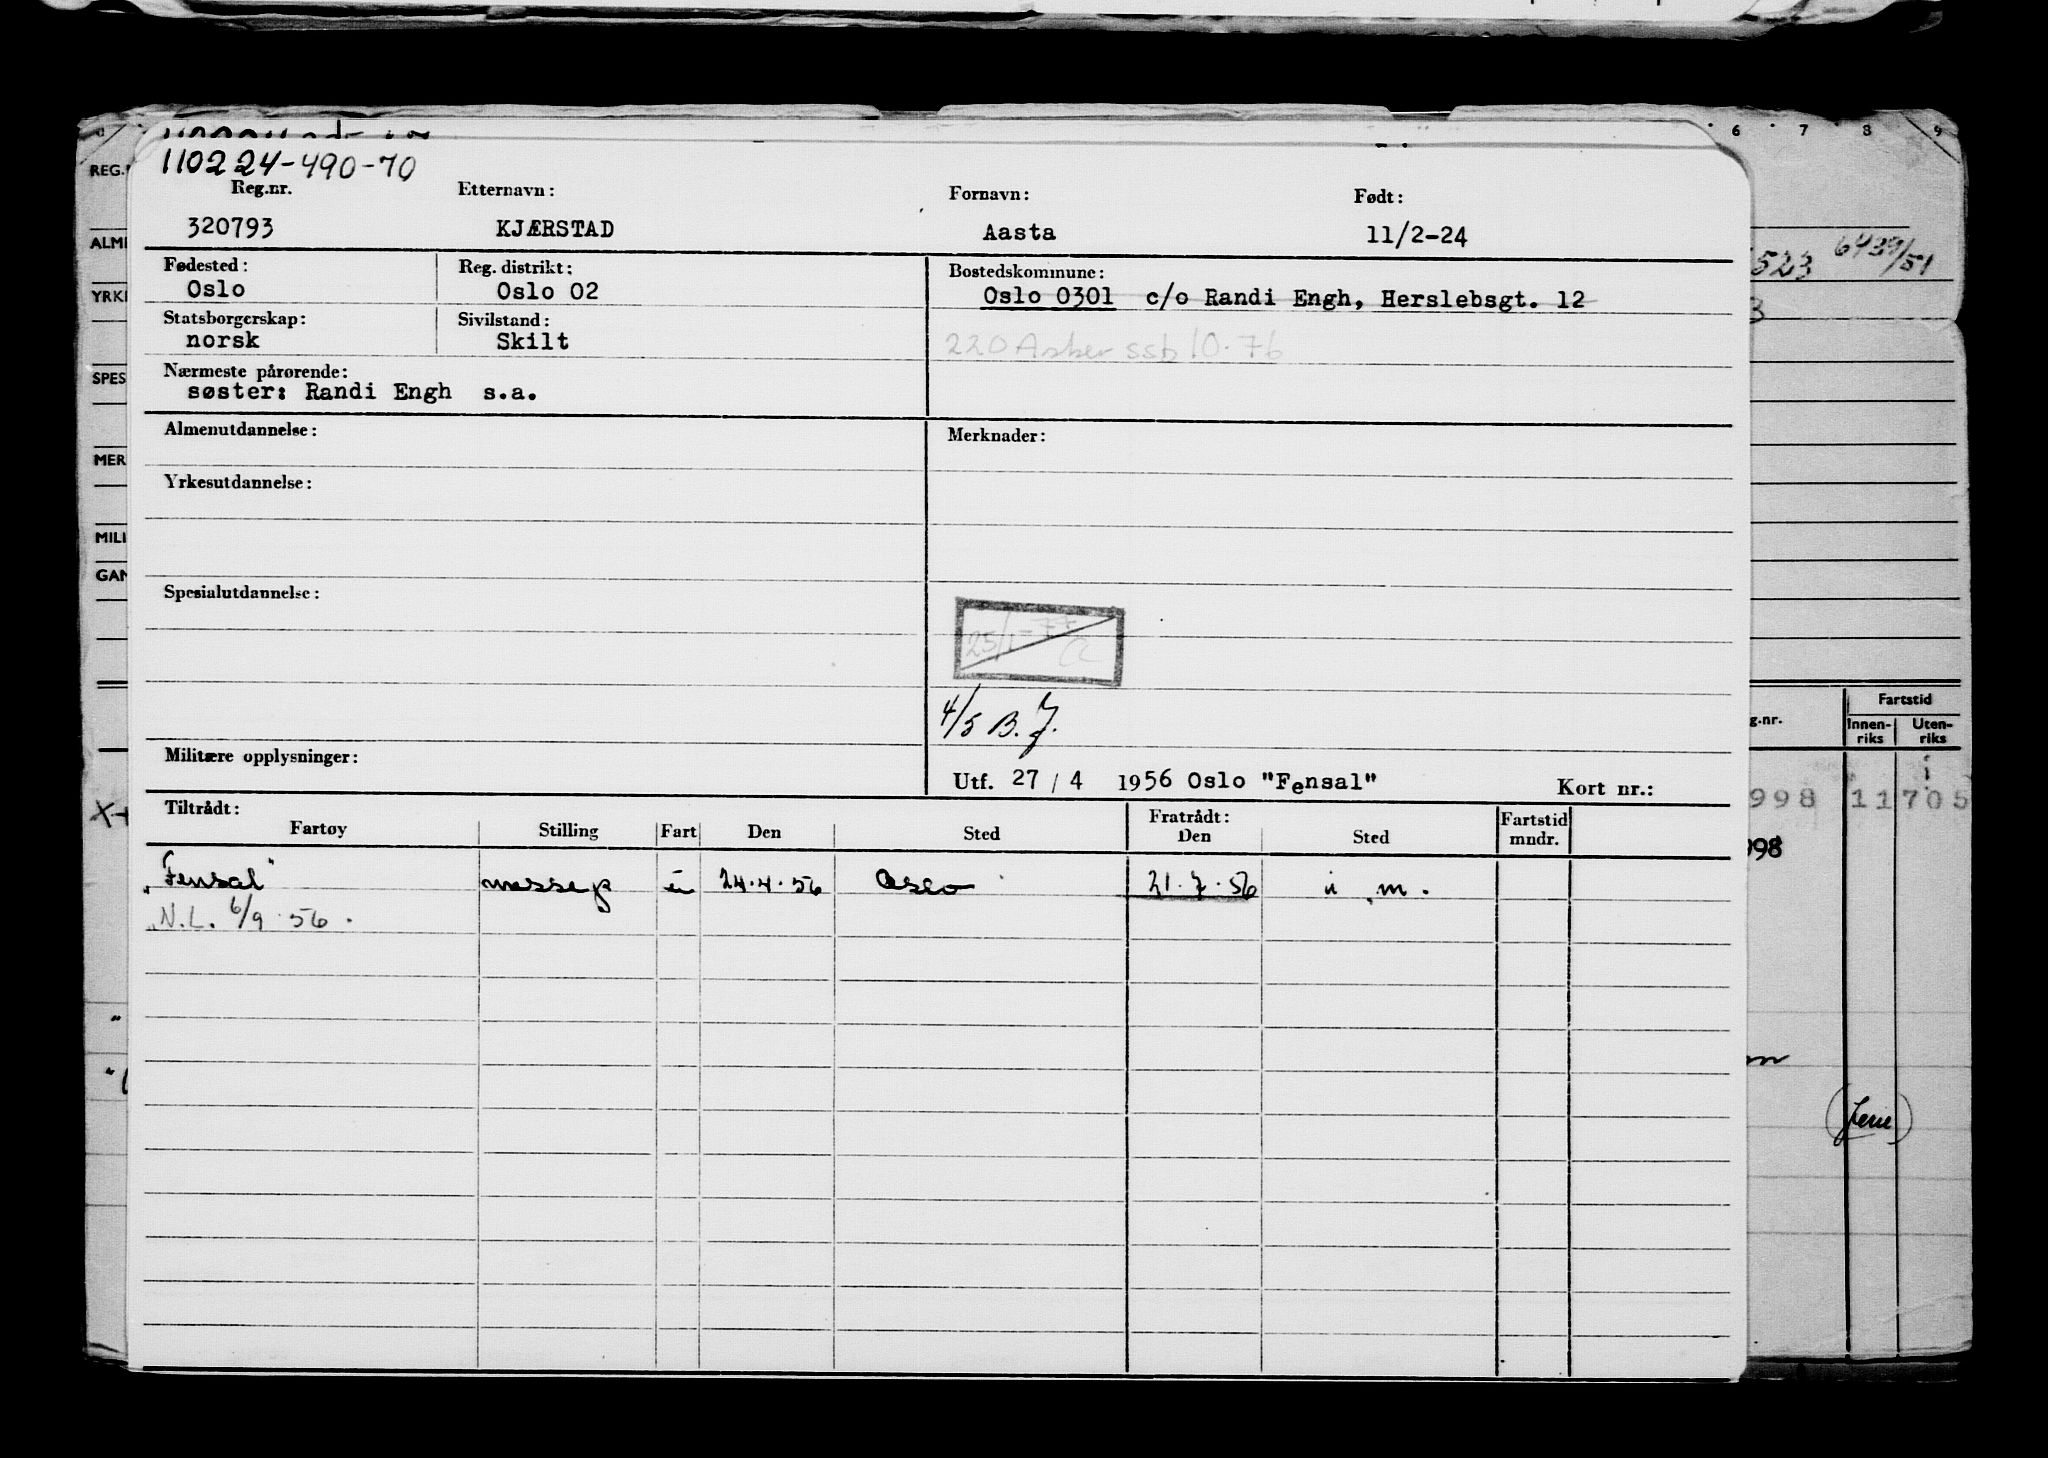 6 7 8 9
REG.
110224-490-70
Reg.nr. Etternavn: Fornavn: Født:
320793 KJÆRSTAD Aasta 11/2-24
ALM
523 6439/51
Fødested: Reg. distrikt: Bostedskommune:
Oslo Oslo 02 Oslo 0301 c/o Randi Engh, Herslebsgt. 12
YRK
Statsborgerskap: Sivilstand:
norsk Skilt 220 Asker ssb 10.76
Nærmeste pårørende:
SPES
søster: Randi Engh s.a.
Almenutdannelse: Merknader:
MER
Yrkesutdannelse:
MILI
GAN
Spesialutdannelse:
25/1-77
4/5 B.J.
g.nr. Fartstid
Innenriks Utenriks
Militære opplysninger:
Utf. 27/4 1956 Oslo "Fensal" Kort nr.:
998 11705
Tiltrådt: Fratrådt:
Fartøy Stilling Fart Den Sted Den Sted Fartstid mndr.
998
"Fensal" messep u 24.4.56 Oslo 21.7.56 i m.
N.L. 6/9 56.
(ferie)